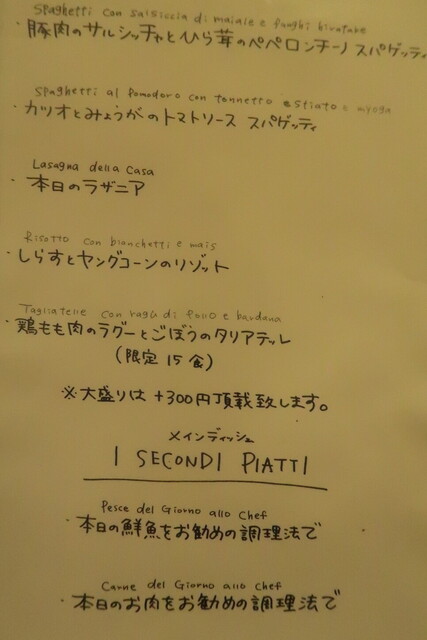 Spaghetti con salsiccia di maiale e funghi hiratake
・豚肉のサルシッチャとひら茸のペペロンチーノ スパゲッティ
Spaghetti al pomodoro con tonnetto e myoga
・カツオとみょうがのトマトソース スパゲッティ
Lasagna della Casa
・本日のラザニア
Risotto con bianchetti e mais
・しらすとヤングコーンのリゾット
Tagliatelle con ragù di pollo e bardana
・鶏もも肉のラグーとごぼうのタリアテッレ
(限定 15食)
※大盛りは +300円頂戴致します。
メインディッシュ
I SECONDI PIATTI
Pesce del Giorno allo Chef
・本日の鮮魚をお勧めの調理法で
Carne del Giorno allo Chef
・本日のお肉をお勧めの調理法で